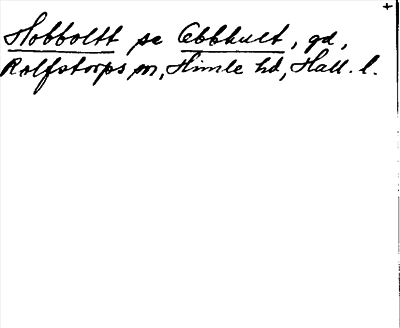 +
Hobboltt se Obbhult, gd,
Rolfstorps sn, Himle hd, Hall. l.